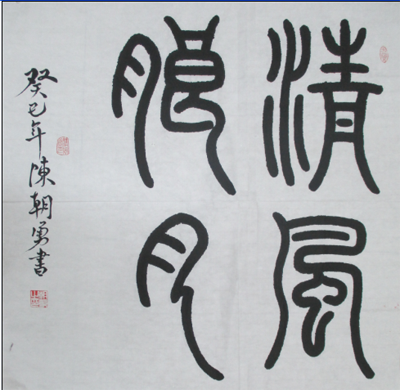 清風
朖月
癸巳年陳朝勇書